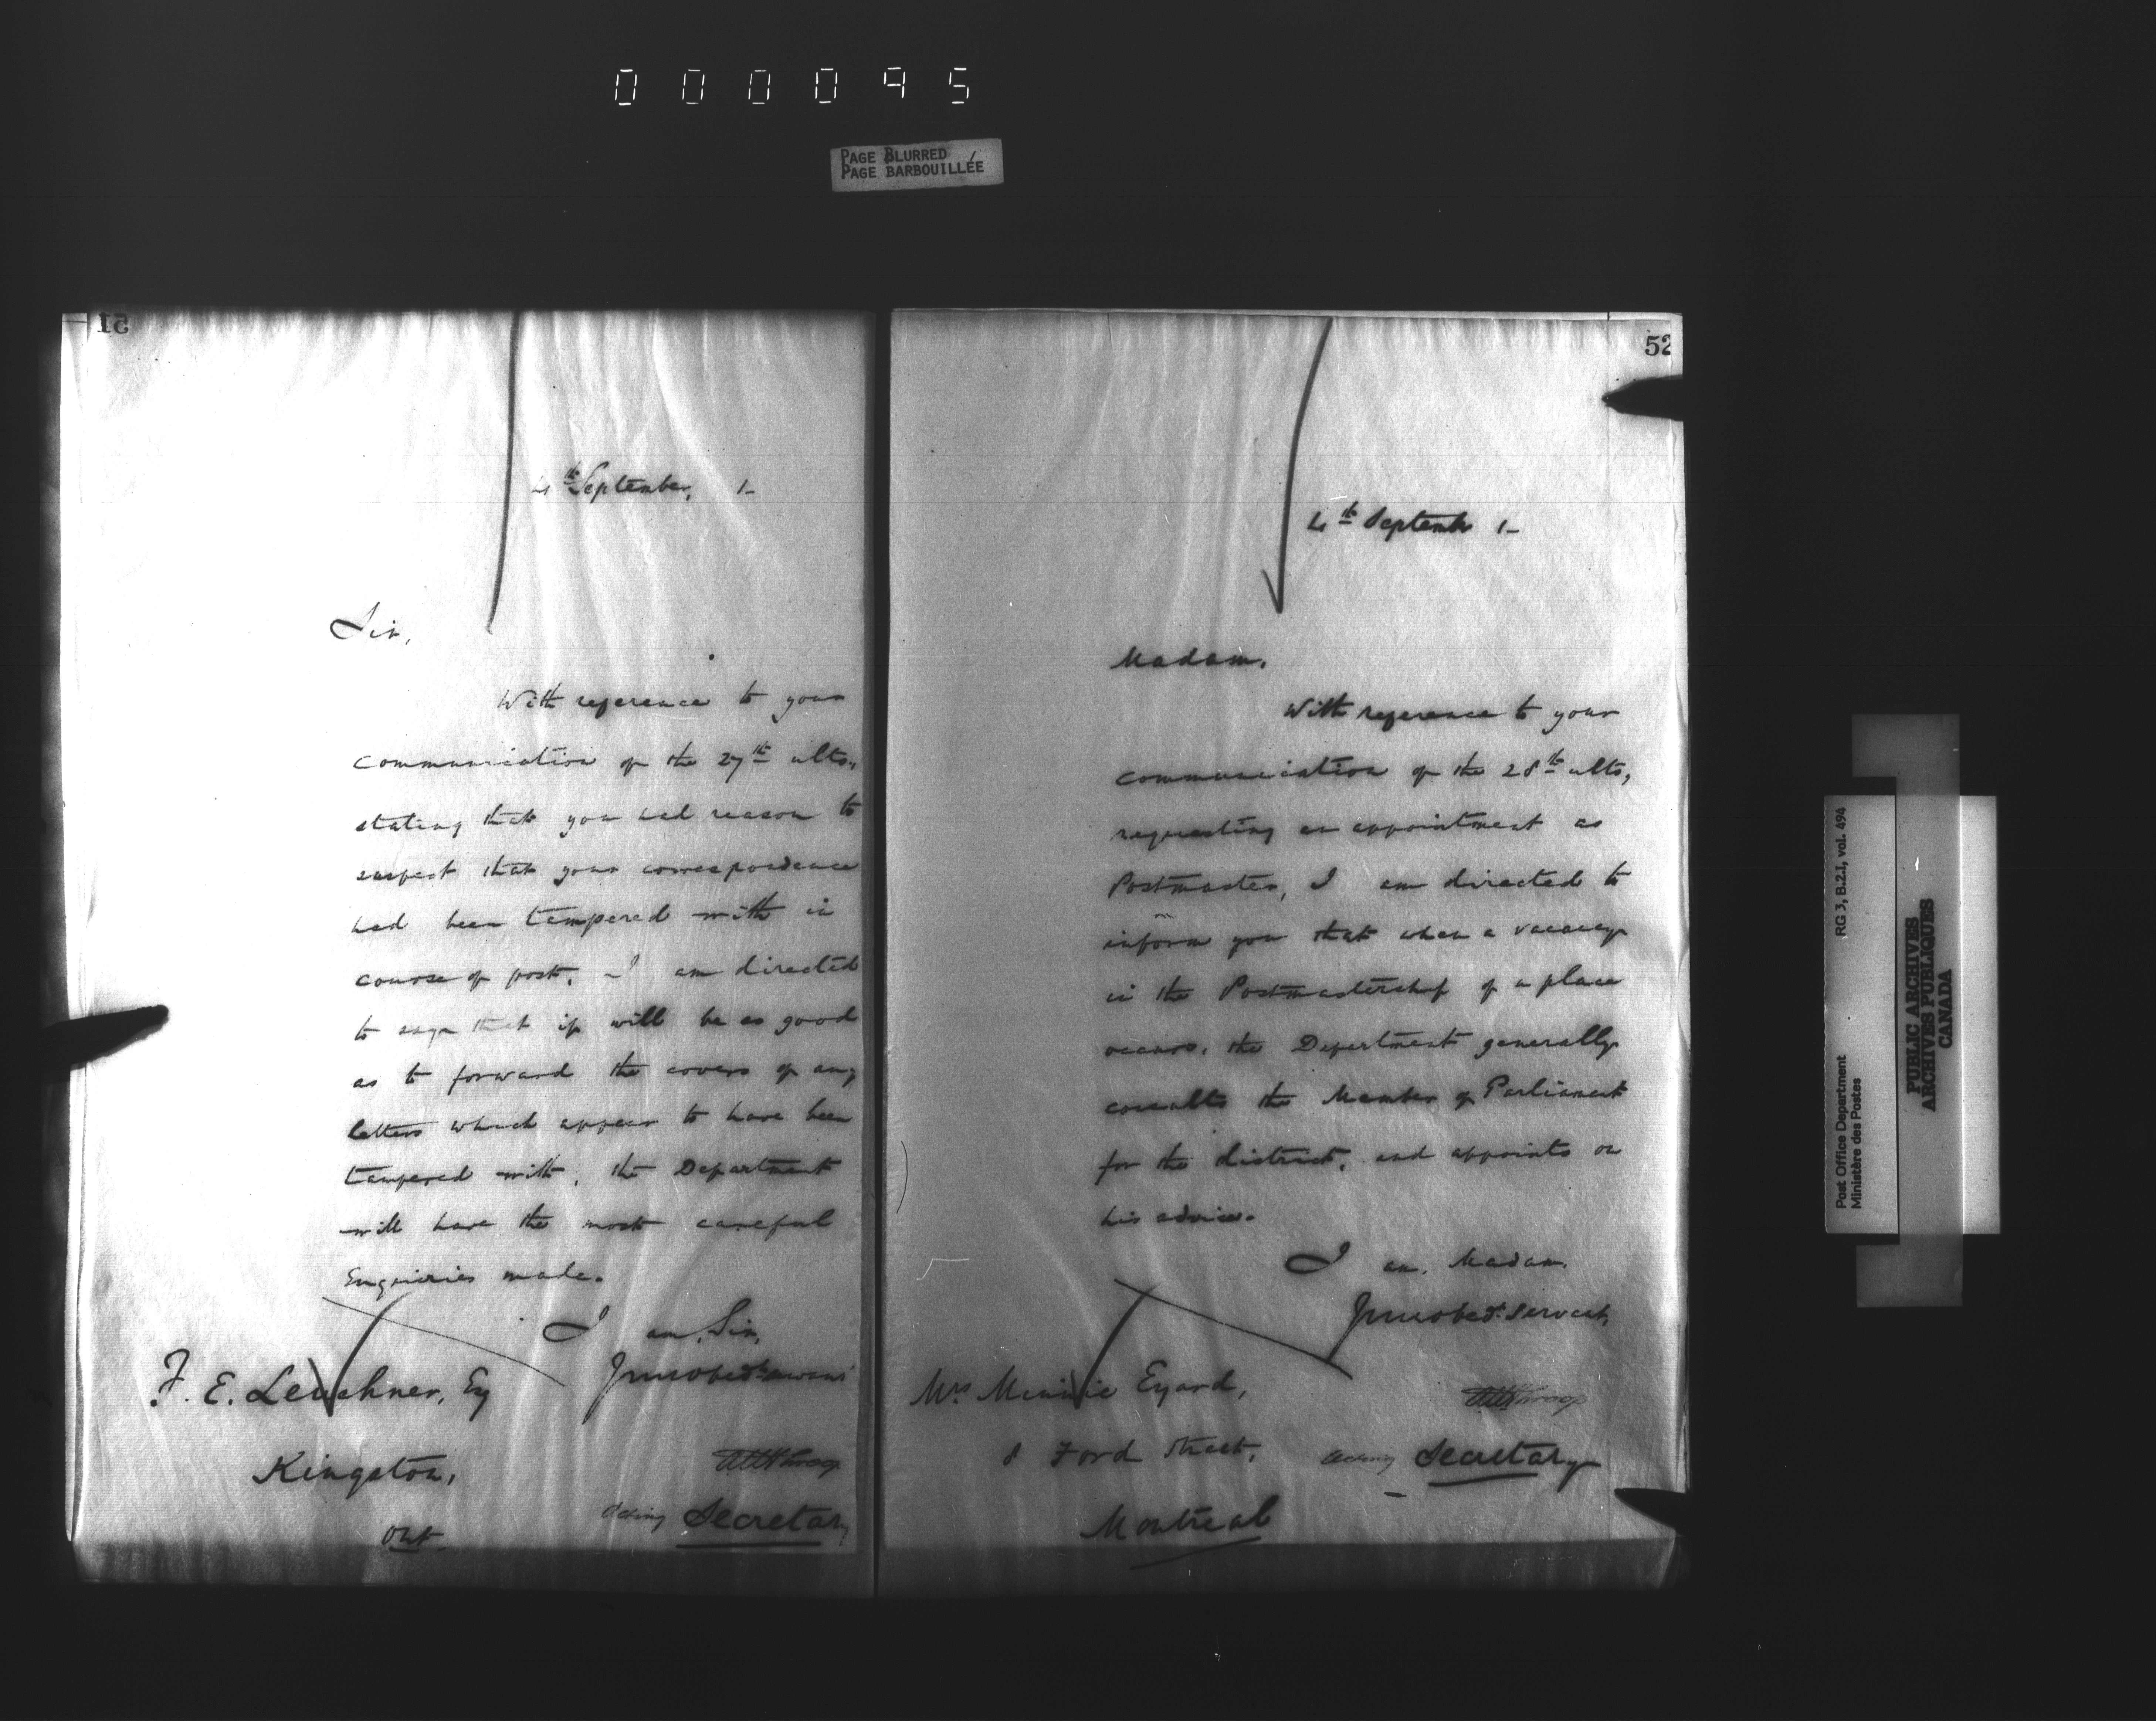 000095
PAGE BLURRED
PAGE BARBOUILLÉE
51
4th September, 1-
Sir,
With reference to your
communication of the 27th ulto.,
stating that you had reason to
suspect that your correspondence
had been tampered with in
course of post, I am directed
to say that if will be so good
as to forward the covers of any
letters which appear to have been
tampered with, the Department
will have the most careful
Enquiries made.
I am, Sir,
F. E. Leuschner, Esq
Kingston,
Ont.
Acting Secretary
52
4th September 1-
Madam,
With reference to your
communication of the 28th ulto,
requesting an appointment as
Postmaster, I am directed to
inform you that when a vacancy
in the Postmastership of a place
occurs, the Department generally
consults the Member of Parliament
for the district, and appoints on
his advice.
I am, Madam,
Your obedt. servant,
Mrs Minnie Eyard,
8 Ford Street,
Montreal
Acting Secretary
Post Office Department RG 3, B.2.I, vol. 494
Ministère des Postes
PUBLIC ARCHIVES
ARCHIVES PUBLIQUES
CANADA